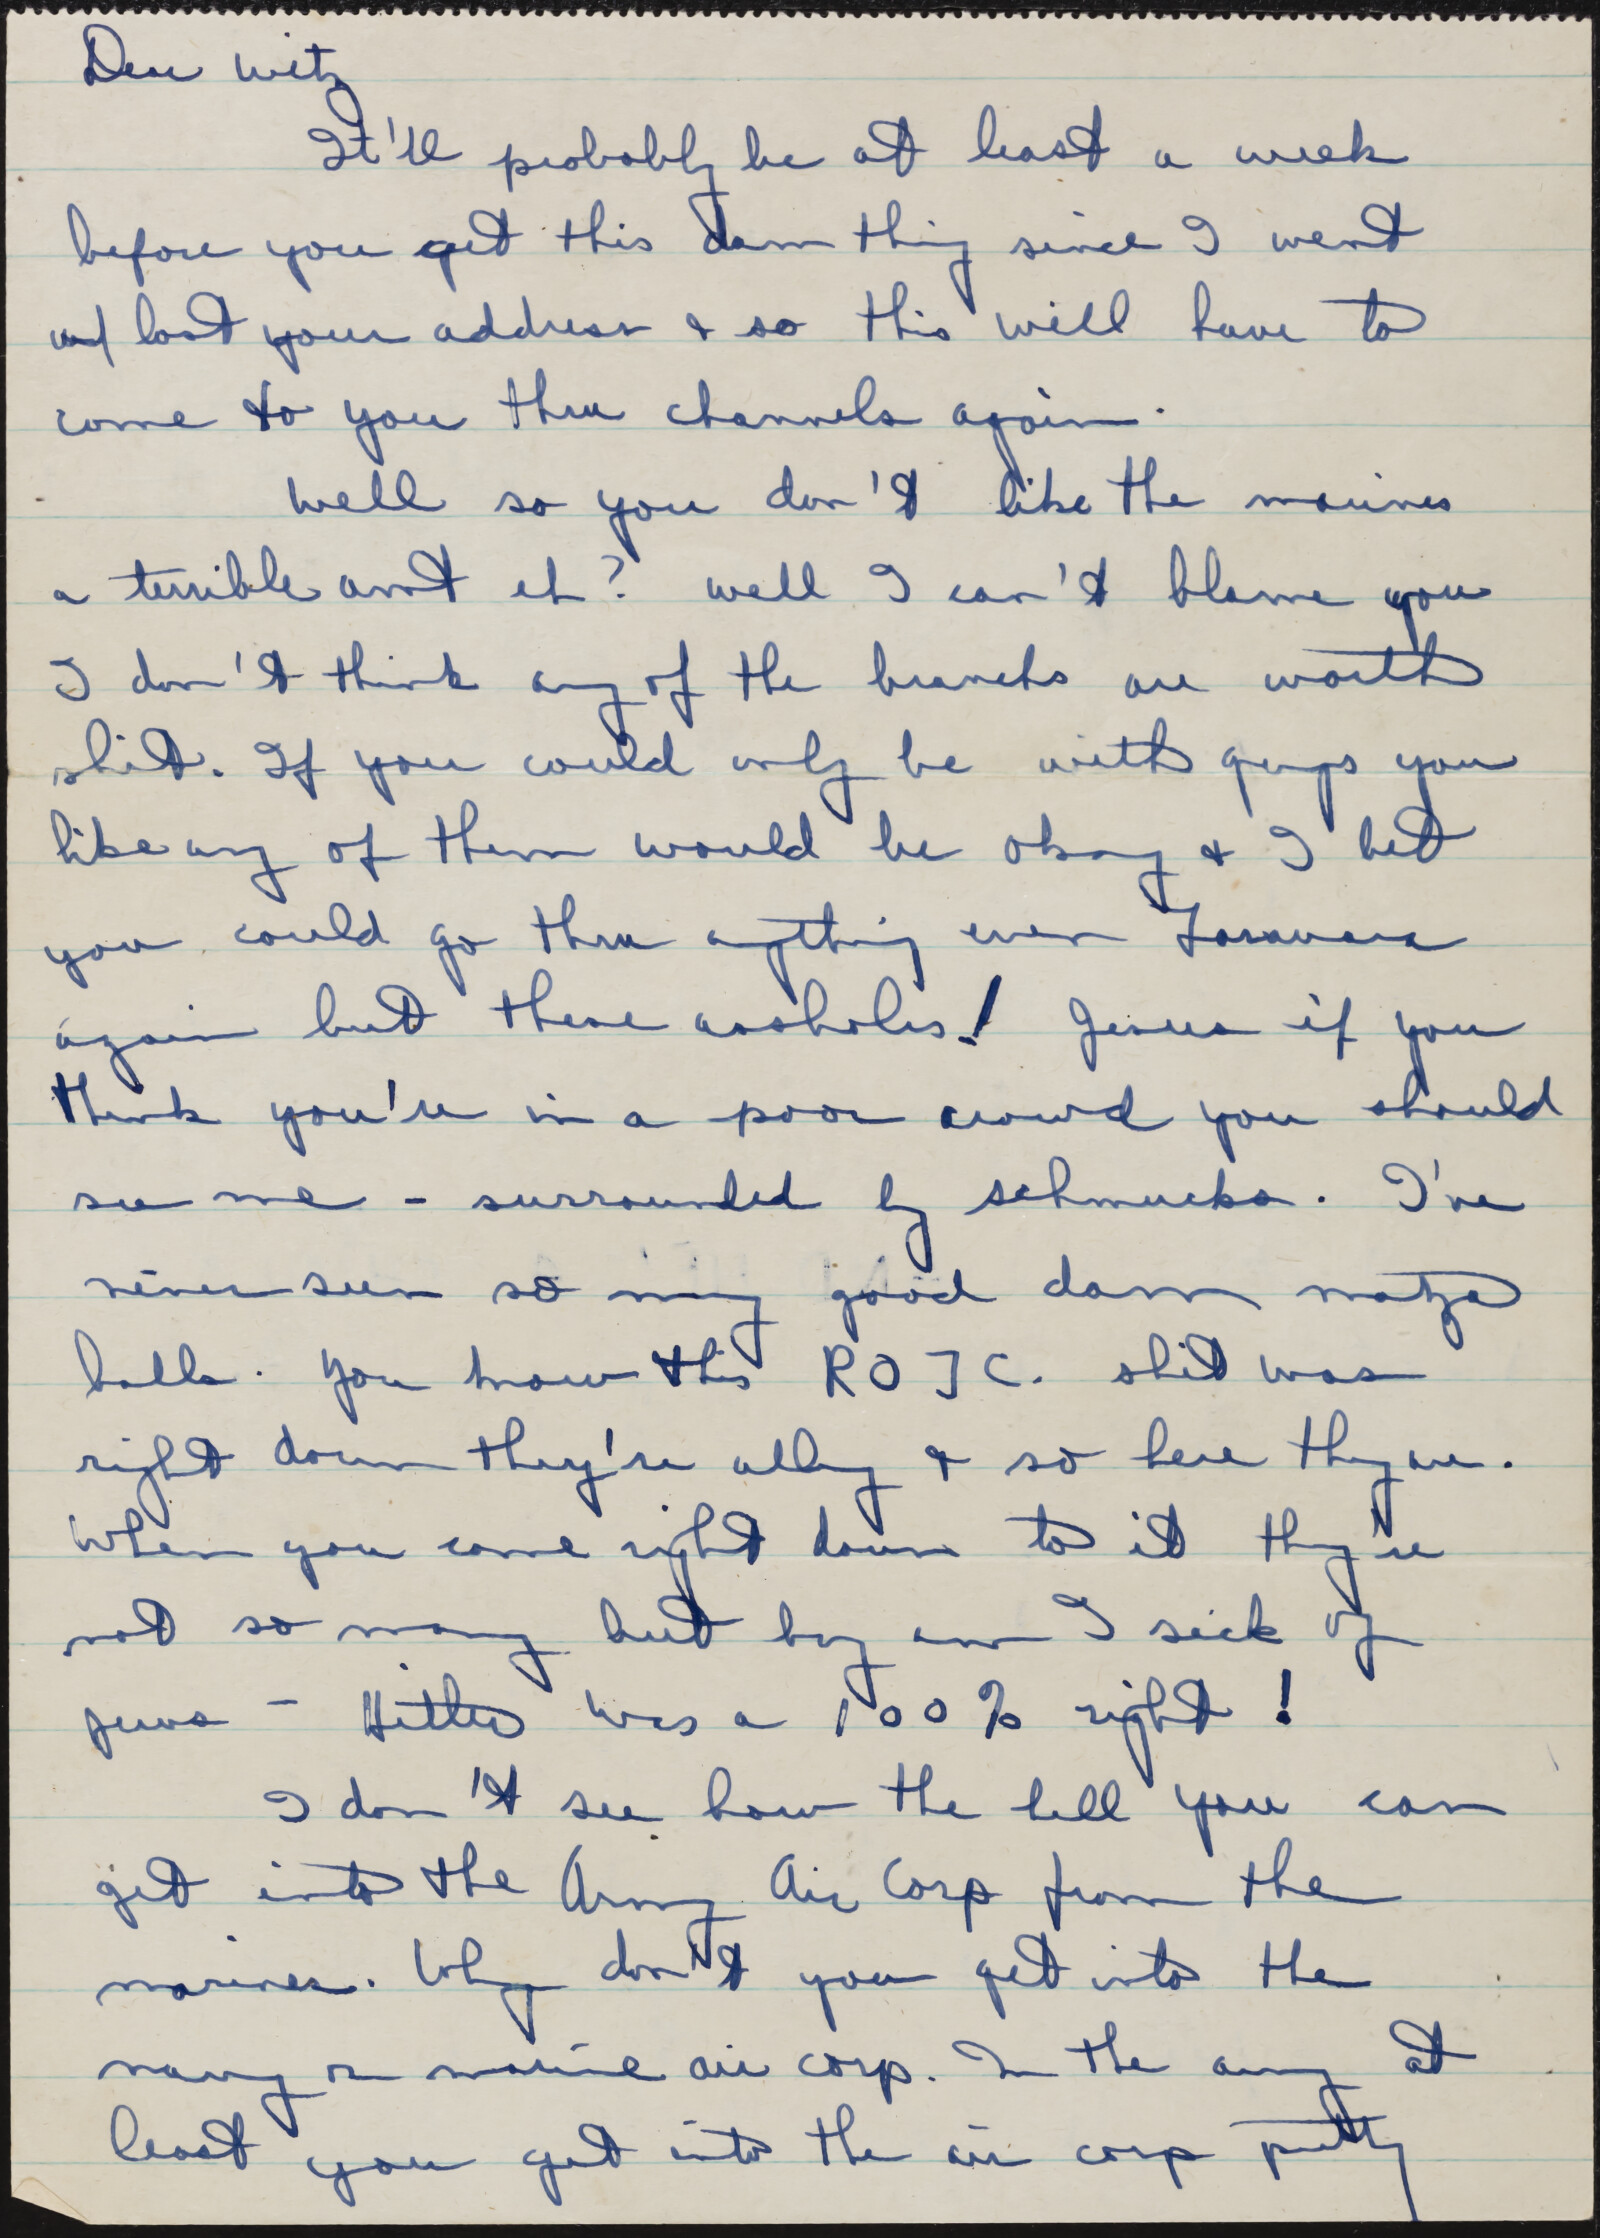 Dear Witz
It'll probably be at least a week
before you get this dam thing since I went
and lost your address & so this will have to
come to you thru channels again.
Well so you don't like the marines
a terrible amt eh? Well I can't blame you
I don't think any of the branchs are worth
shit. If you could only be with guys you
like any of them would be okay & I bet
you could go thru anything even
again but these assholes! Jesus if you
think you're in a poor crowd you should
see me - surrounded by schmucks. I've
never seen so many good damn matza
balls. You know this ROTC. shit was
right down they're alley & so here they are.
When you come right down to it they're
not so many but boy am I sick of
jews - Hitler was a 100% right!
I don't see how the hell you can
get into the Army Air Corp from the
marines. Why don't you get into the
navy or marine air corp. In the army at
least you get into the air corp pretty